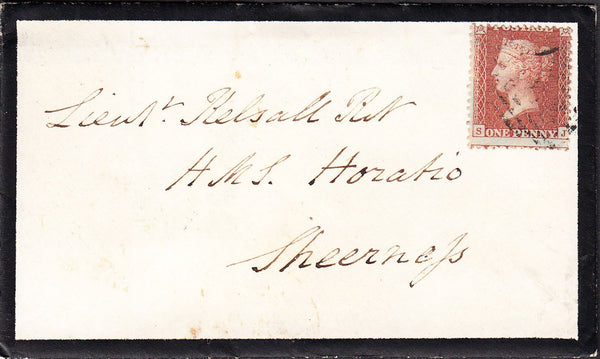 S ONE PENNY J
Lieut^r. Kelsall RN
H.M.S. Horatio
Sheerneſs